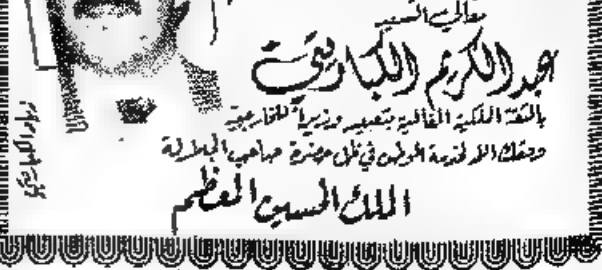 معالي السيد
عبد الكريم الكباريتي
بالثقة الملكية الغالية بتعيينه وزيراً للخارجية
ووفقك الله لخدمة الوطن في ظل حضرة صاحب الجلالة
الملك الحسين المعظم
زياد الكباريتي